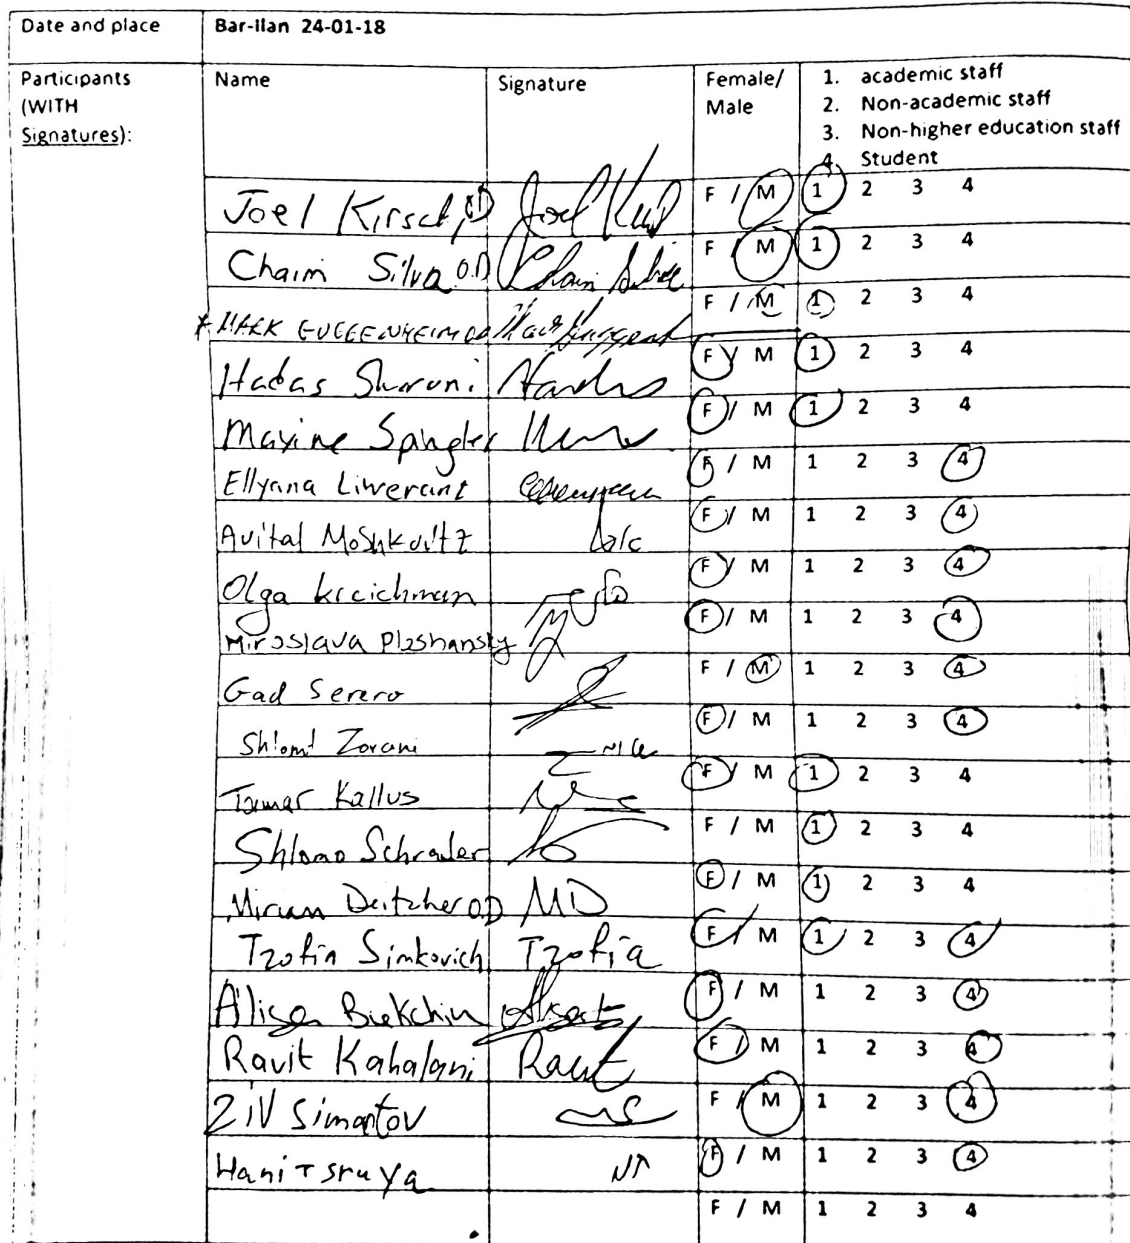 Date and place Bar-Ilan 24-01-18
Participants (WITH Signatures): Name Signature Female/ Male 1. academic staff
2. Non-academic staff
3. Non-higher education staff
4. Student
Joel Kirsch, OD Joel F / M 1 2 3 4
Chaim Silva O.D Chaim F / M 1 2 3 4
* MARK GUGGENHEIM OD F / M 1 2 3 4
Hadas Sharoni F / M 1 2 3 4
Maxine Spingler F / M 1 2 3 4
Ellyana Liwerant F / M 1 2 3 4
Avital Moshkovitz F / M 1 2 3 4
Olga Kreichman F / M 1 2 3 4
Miroslava Ploshansky F / M 1 2 3 4
Gad Serero F / M 1 2 3 4
Shlomi Zorani F / M 1 2 3 4
Tamar Kallus F / M 1 2 3 4
Shlomo Schrader F / M 1 2 3 4
Miriam Deitcher O.D MD F / M 1 2 3 4
Tzofia Simkovich Tzofia F / M 1 2 3 4
Alisa F / M 1 2 3 4
Ravit Kahalani Ravit F / M 1 2 3 4
Ziv Simantov F / M 1 2 3 4
Hani Tsruya F / M 1 2 3 4
F / M 1 2 3 4